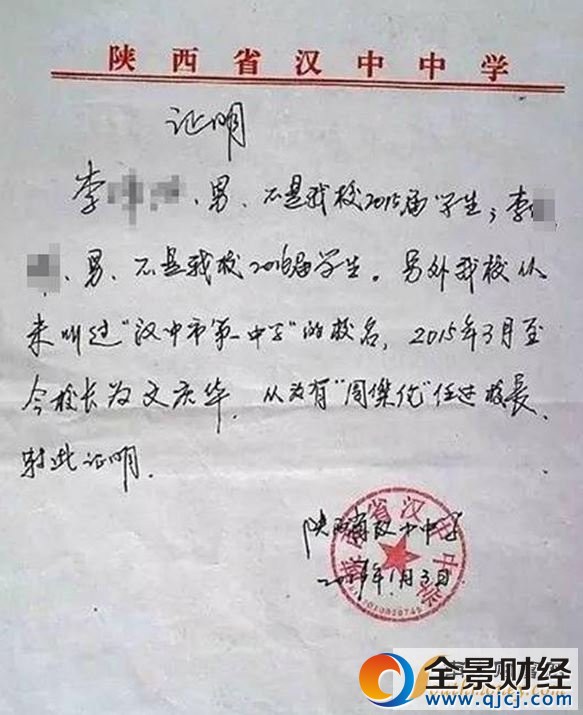 陕西省汉中中学
证明
李 、男、不是我校2015届学生；李
、男、不是我校2016届学生。另外我校从
来叫过“汉中市第一中学”的校名，2015年3月至
今校长为文庆华，从为有“周傑伦”任过校长、
特此证明.
陕西省汉中中学
年1月3日
全景财经
www.qjcj.com